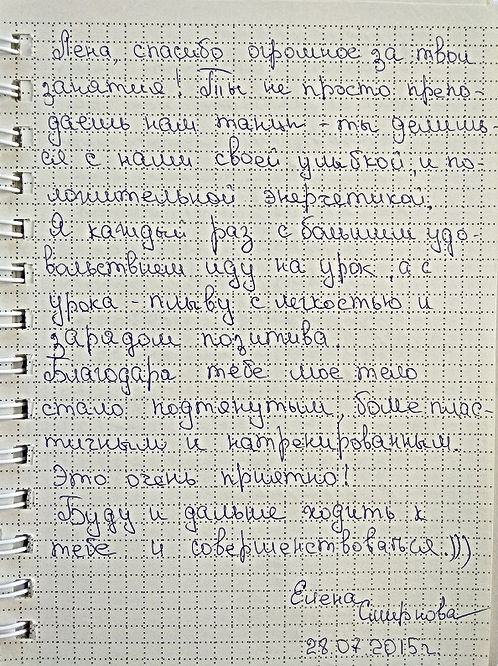 Лена, спасибо огромное за твои
занятия! Ты не просто препо-
даёшь нам танцы - ты делишь-
ся с нами своей улыбкой, и по-
ложительной энергетикой.
Я каждый раз с большим удо-
вольствием иду на урок, а с
урока - плыву с легкостью и
зарядом позитива.
Благодаря тебе мое тело
стало подтянутым, более плас-
тичным и натренированным.
Это очень приятно!
Буду и дальше ходить к
тебе и совершенствоваться.)))
Елена
Смирнова
28.07.2015г.